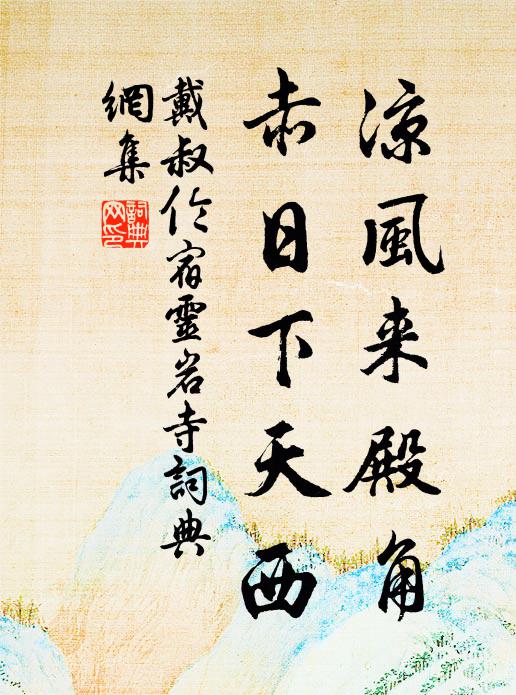 凉風来殿角
赤日下天西
戴叔伦宿靈岩寺詞典
網集
詞典網印